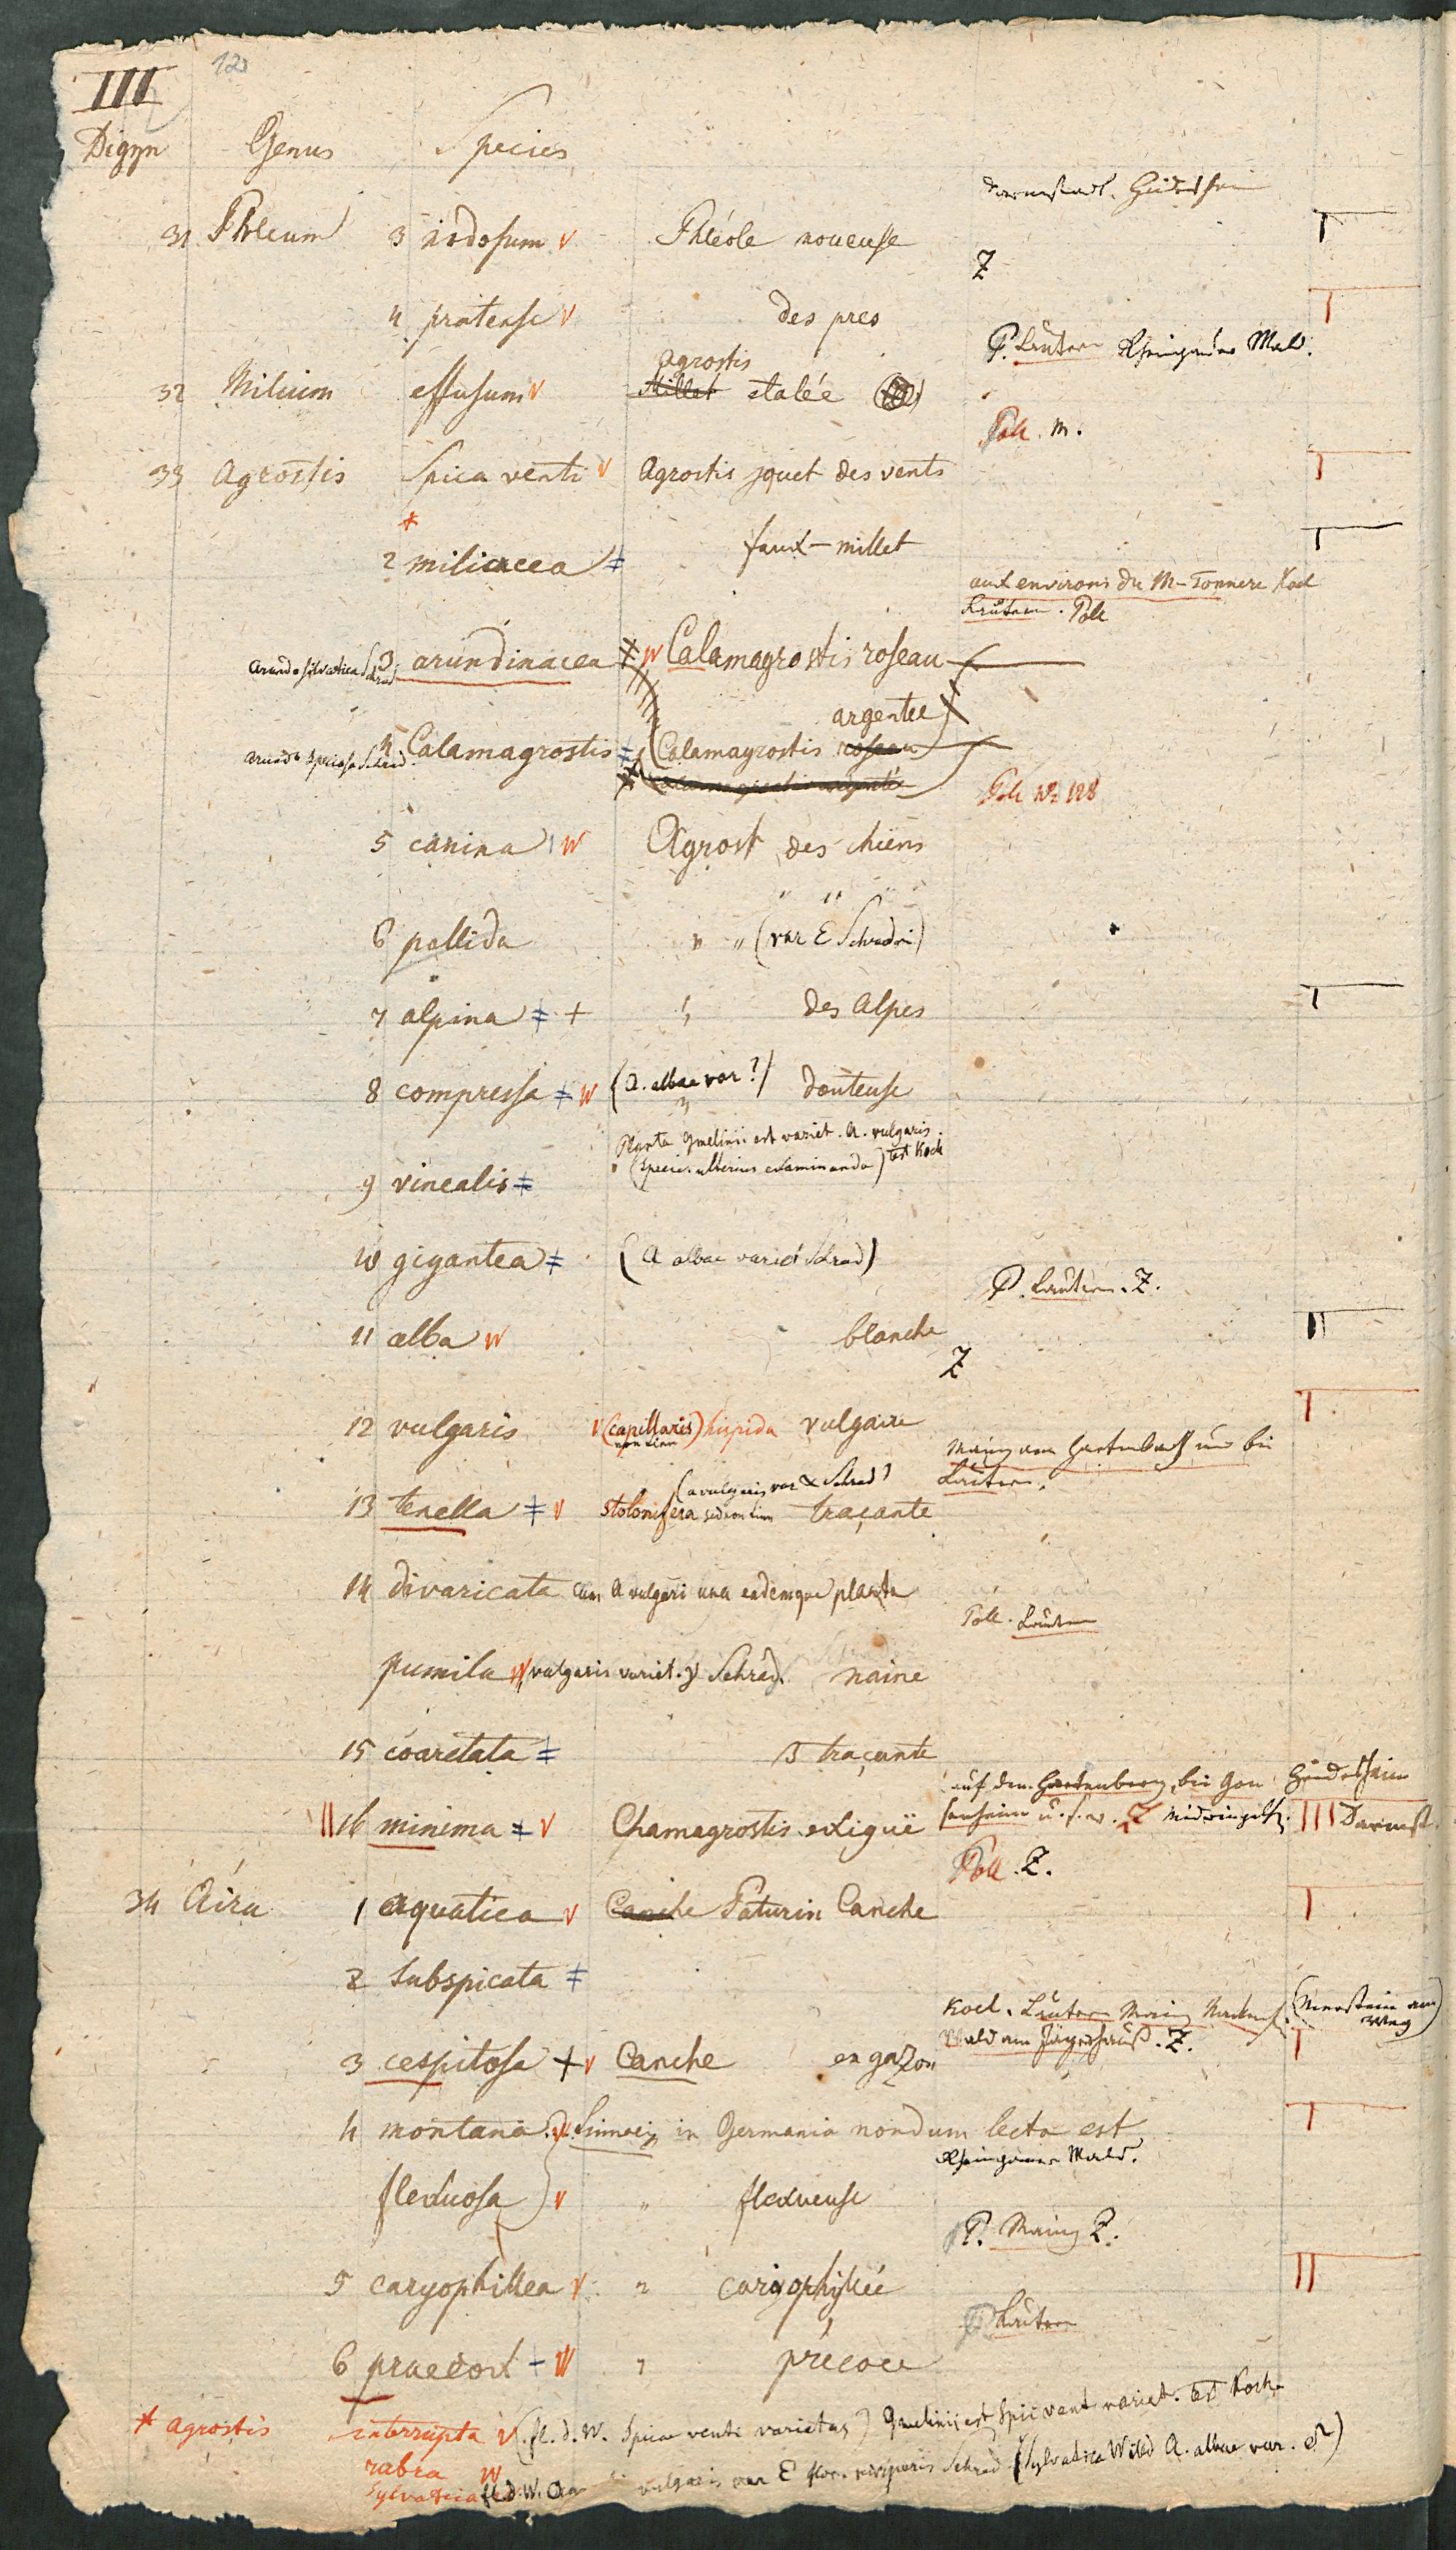 III 12
Digyn Genus Species
31 Phleum 3 nodosum v Phléole noueuse
Z
4 pratense v des pres
P. Lautern Rheingauer Wald.
agrostis
32 Milium effusum v Millet etalée
Poll. M.
33 Agrostis Spica venti v Agrostis jouet des vents
*
2 miliacea ‡ faux-millet
aux environs du M-Tonnere Koch
Lautern. Poll
Arundo silvatica Schrad 3 arundinacea ‡ W Calamagrostis roseau
argentee
Arundo speciosa Schrad 4 Calamagrostis ‡ Calamagrostis roseau
Calamagrostis argenté
Poll No 128
5 canina W Agrost des chiens
6 pallida " " (var E Schraderi)
7 alpina ‡ + " des Alpes
8 compressa ‡ W (A. albae var?) douteuse
Planta Gmelini est variet. A. vulgaris.
(Species ulterius examinanda) test Koch
9 vinealis ‡
10 gigantea ‡ (A albae variet Schrad)
P. Lautern. Z.
11 alba W blanche
Z
12 vulgaris v (capillaris) hispida vulgaire
non Linn
Lautern.
(a vulgaris var α Schrad)
13 tenella ‡ v stolonifera sed non Linn traçante
14 divaricata cum A vulgari una eademque planta
Poll. Lautern
pumila W vulgaris variet. γ Schrad. naine
15 coarctata ‡ β traçante
auf dem Hartenberg, bei Gon
16 minima ‡ v Chamagrostis exiguë senheim u.s.w. Z III Darmst.
Poll. Z.
34 Aira 1 aquatica v Canche Paturin Canche
2 subspicata ‡
Koch. Lautern Mainz (Nierstein am Weg)
Wald am Jägerhauß. Z.
3 cespitosa + v Canche en gazon
4 montana v. Linnaei in Germania nondum lecta est
Rheingauer Wald.
flexuosa v " flexueuse
P. Mainz Z.
5 caryophillea v " cariophyllée
P Lautern
6 praecox + W " précoce
* Agrostis interrupta v (fl. d. W. Spicae venti varietas) Gmelinii est Spic vent variet. test Koch
rubra W
sylvatica fl. d. W. vulgaris var E flor. viviparis Schrad (sylvatica Willd A. albae var. δ)